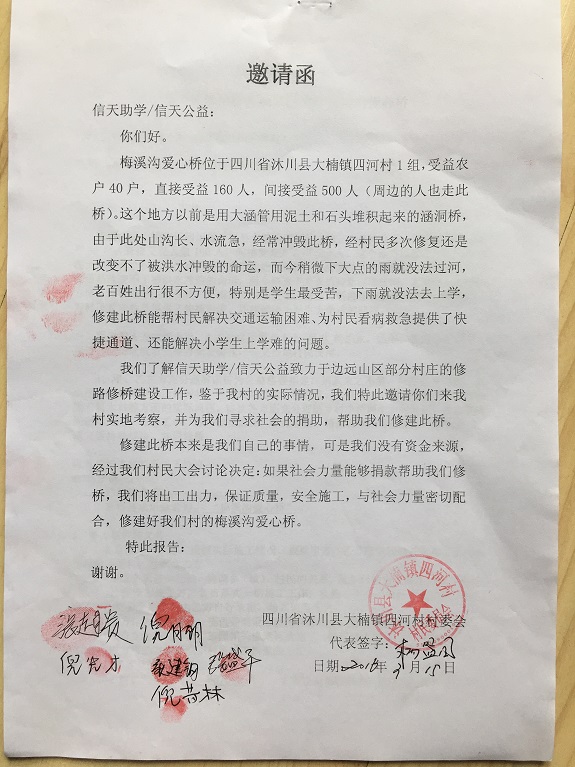 邀请函
信天助学/信天公益：
你们好。
梅溪沟爱心桥位于四川省沐川县大楠镇四河村1组，受益农
户40户，直接受益160人，间接受益500人（周边的人也走此
桥）。这个地方以前是用大涵管用泥土和石头堆积起来的涵洞桥，
由于此处山沟长、水流急，经常冲毁此桥，经村民多次修复还是
改变不了被洪水冲毁的命运，而今稍微下大点的雨就没法过河，
老百姓出行很不方便，特别是学生最受苦，下雨就没法去上学，
修建此桥能帮村民解决交通运输困难、为村民看病救急提供了快
捷通道、还能解决小学生上学难的问题。
我们了解信天助学/信天公益致力于边远山区部分村庄的修
路修桥建设工作，鉴于我村的实际情况，我们特此邀请你们来我
村实地考察，并为我们寻求社会的捐助，帮助我们修建此桥。
修建此桥本来是我们自己的事情，可是我们没有资金来源，
经过我们村民大会讨论决定：如果社会力量能够捐款帮助我们修
桥，我们将出工出力，保证质量，安全施工，与社会力量密切配
合，修建好我们村的梅溪沟爱心桥。
特此报告：
谢谢。
四川省沐川县大楠镇四河村村委会
代表签字：
日期2018年9月15日
倪月明
倪先才
沐川县大楠镇四河村村民委员会